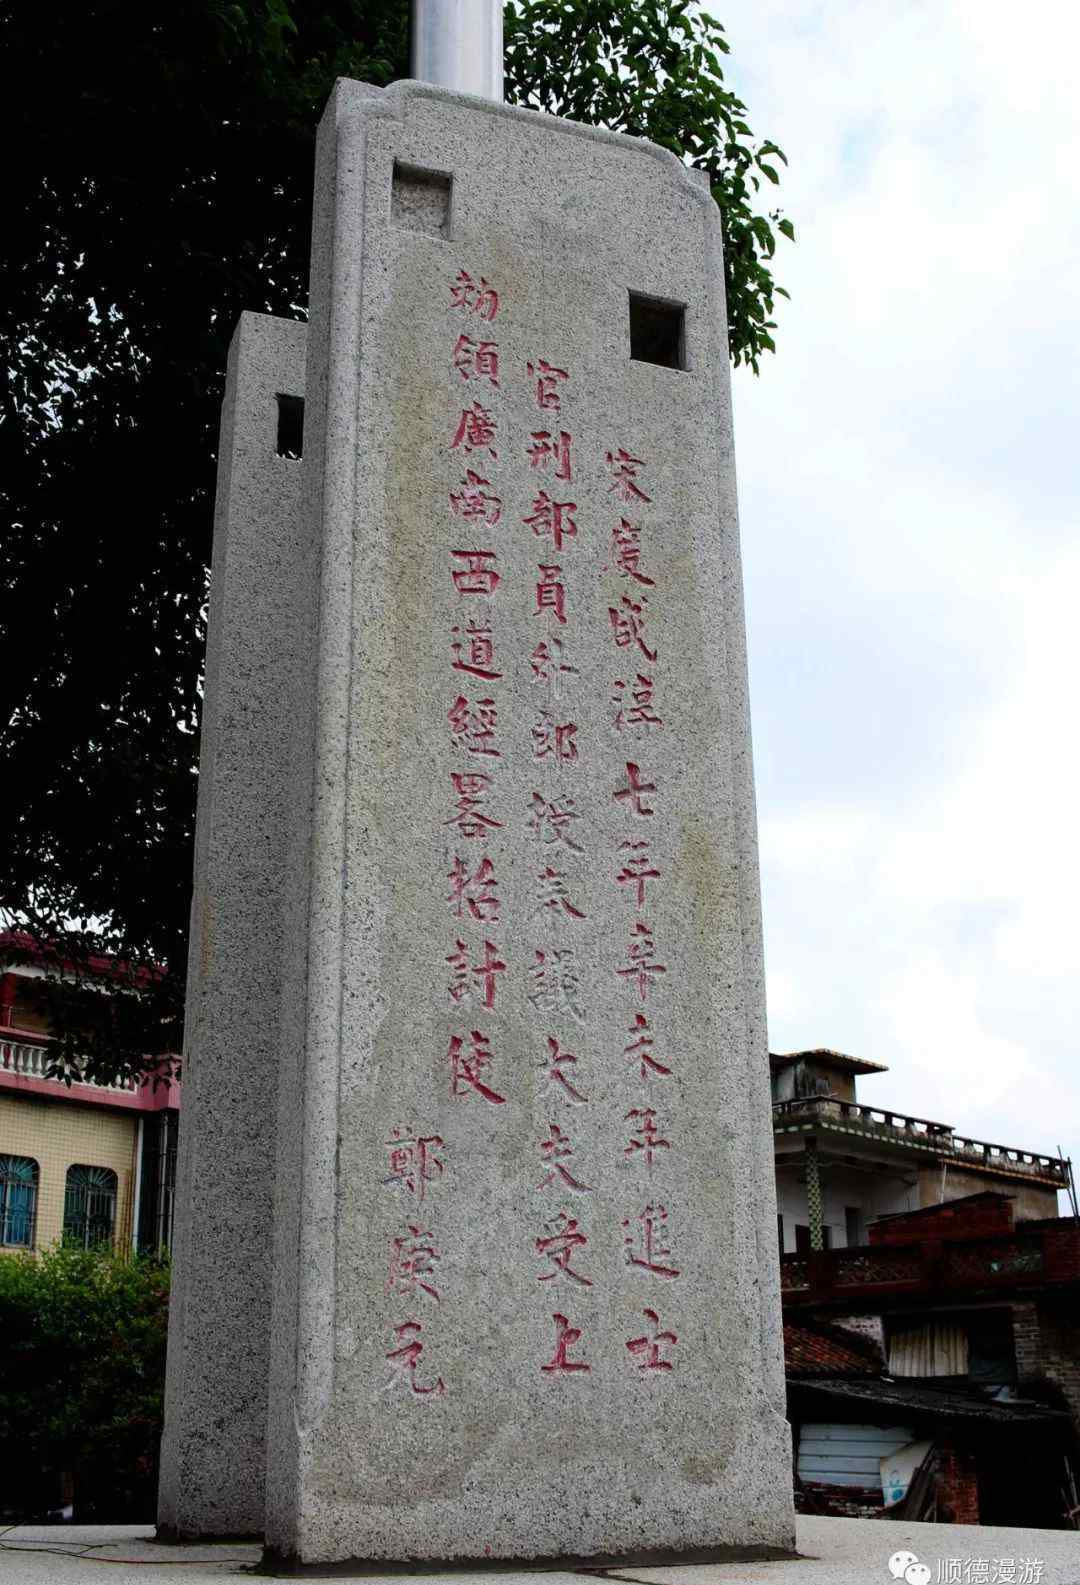 宋度咸淳七年辛未年進士
官刑部員外郎授奉議大夫受上
勅領廣南西道經畧招計使
鄭庚元
顺德漫游